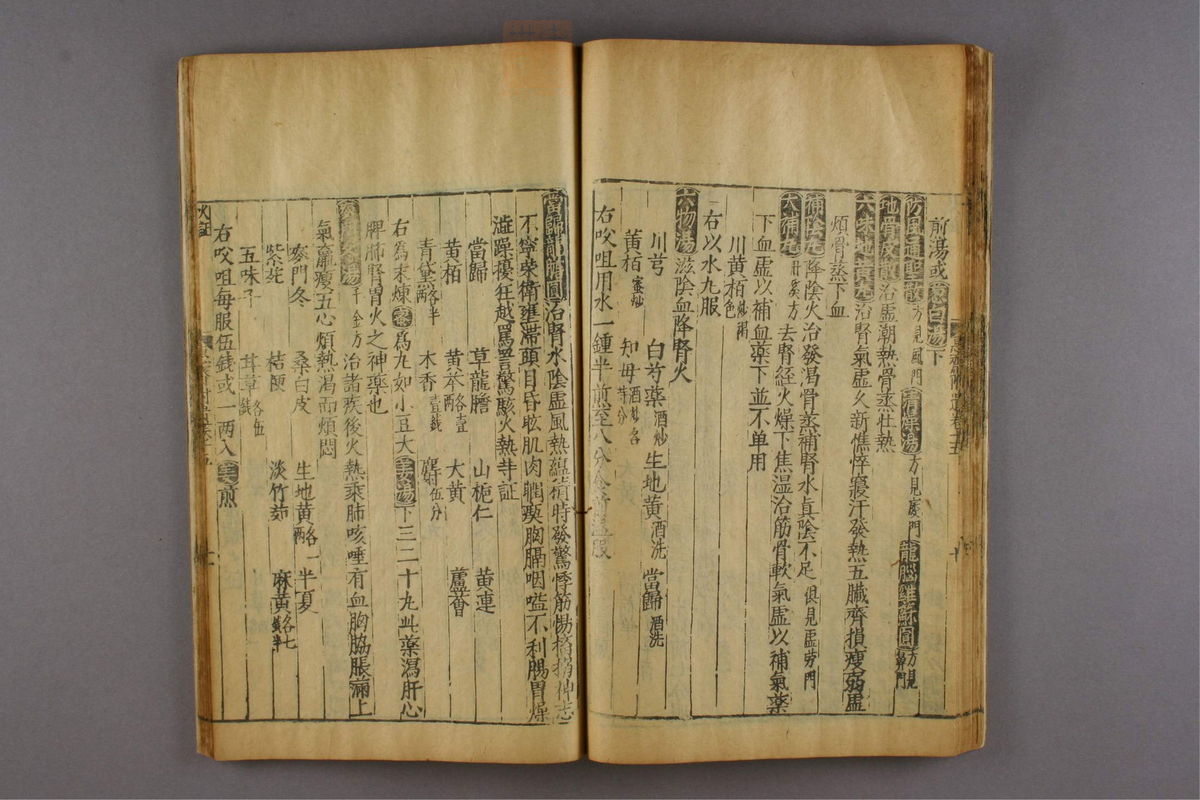 前湯或葱白湯下
防風通聖散方見風門 清燥湯方見痿門 龍腦雞蘇圓方見
地骨皮散治虛潮熱骨蒸壯熱
煩骨蒸下血
六味地黃丸治腎氣虛久新憔悴寢汗發熱五臟齊損瘦弱虛
補陰丸降陰火治發渴骨蒸補腎水真陰不足俱見虛勞門
大補丸丹溪方去腎經火燥下焦濕治筋骨軟氣虛以補氣藥
下血虛以補血藥下並不单用
川黄栢炒褐色
右以水丸服
六物湯滋陰血降腎火
川芎 白芍藥酒炒 生地黄酒洗 當歸酒洗
黄栢蜜炒 知母酒炒各等分
右㕮咀用水一鍾半煎至八分食前温服
當歸龍膽圓治腎水陰虛風熱蘊積時發驚悸筋惕搐搦神志
不寧榮衛壅滯頭目昏眩肌肉瞤瘈胸膈咽嗌不利腸胃燥
澁躁擾狂越罵詈驚駭火熱等証
當歸 草龍膽 山梔仁 黄連
黄栢 黄芩各壹兩 大黄 蘆薈
青黛各半兩 木香壹錢 麝伍分
右為末煉蜜為丸如小豆大姜湯下三二十丸此藥瀉肝心
脾肺腎胃火之神藥也
麥門冬湯千金方治諸疾後火熱乘肺咳唾有血胸脇脹滿上
氣羸瘦五心煩熱渴而煩悶
麥門冬 桑白皮 生地黄各一兩 半夏
紫菀 桔梗 淡竹茹 麻黄各七錢半
五味子 甘草各伍錢
右㕮咀每服伍錢或一两入姜煎
火証